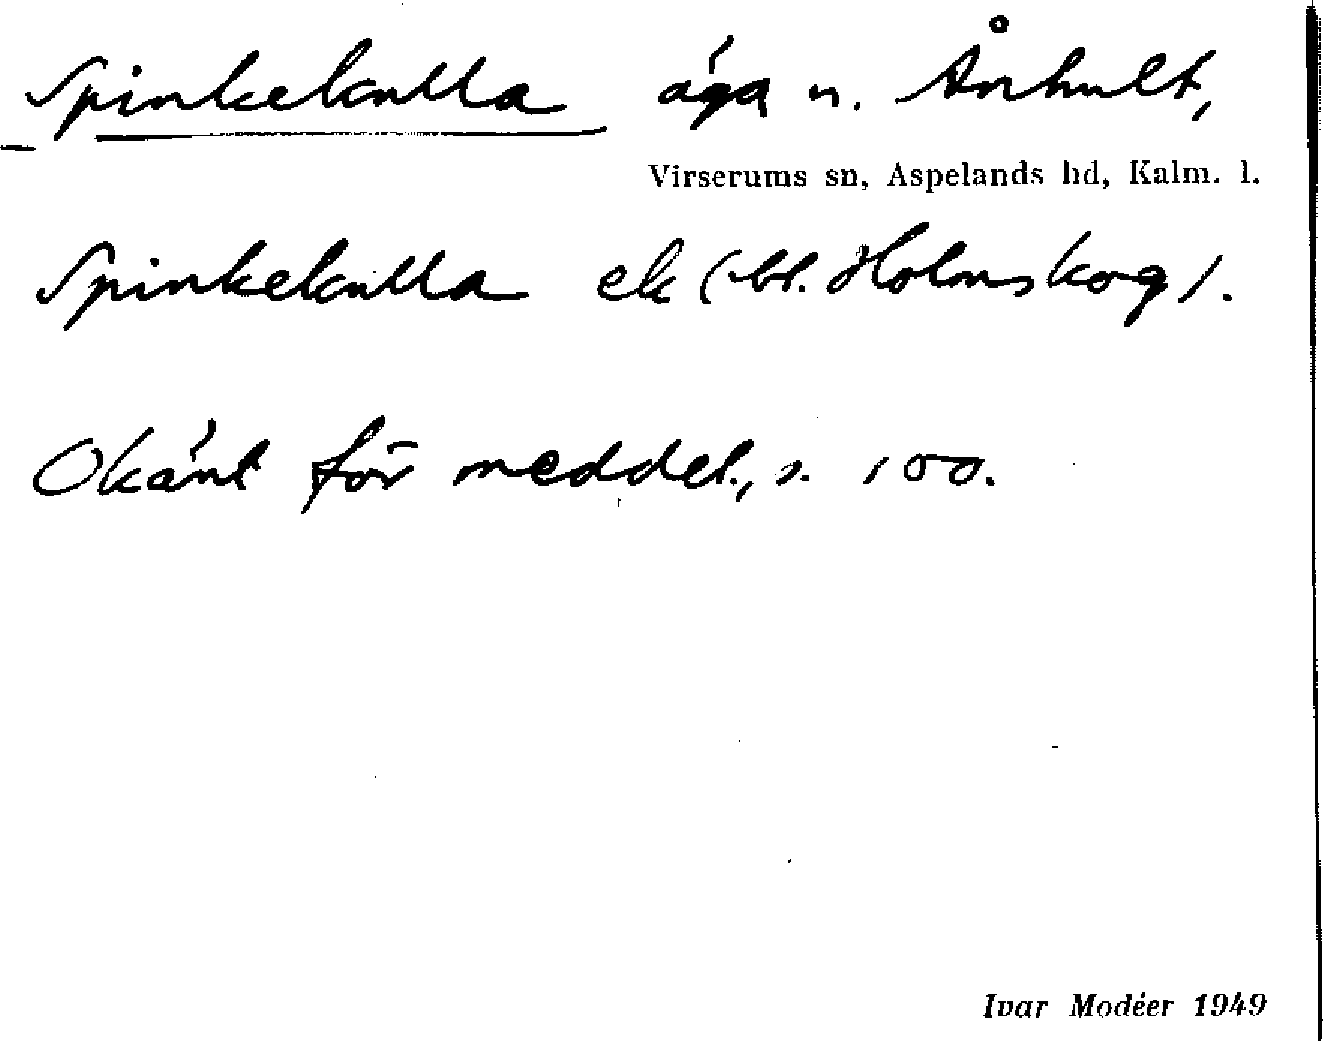 Spinkekulla äga n. Ånhult,
Virserums sn, Aspelands hd, Kalm. l.
Spinkekulla ek (bl. Holmskog).
Okänt för meddel., s. 100.
Ivar Modéer 1949